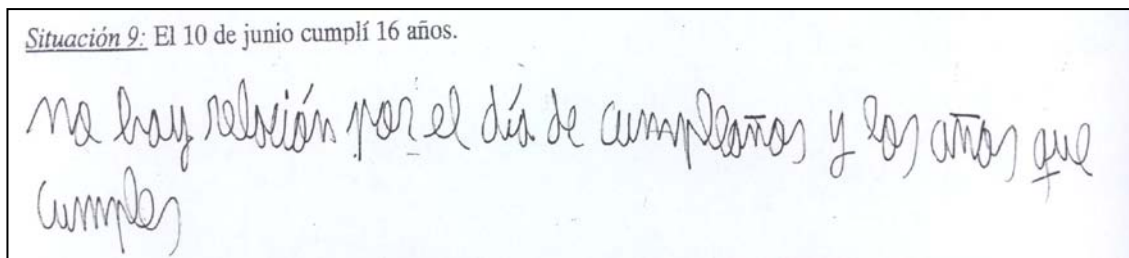 Situación 9: El 10 de junio cumplí 16 años.
no hay relación por el día de cumpleaños y los años que
cumples